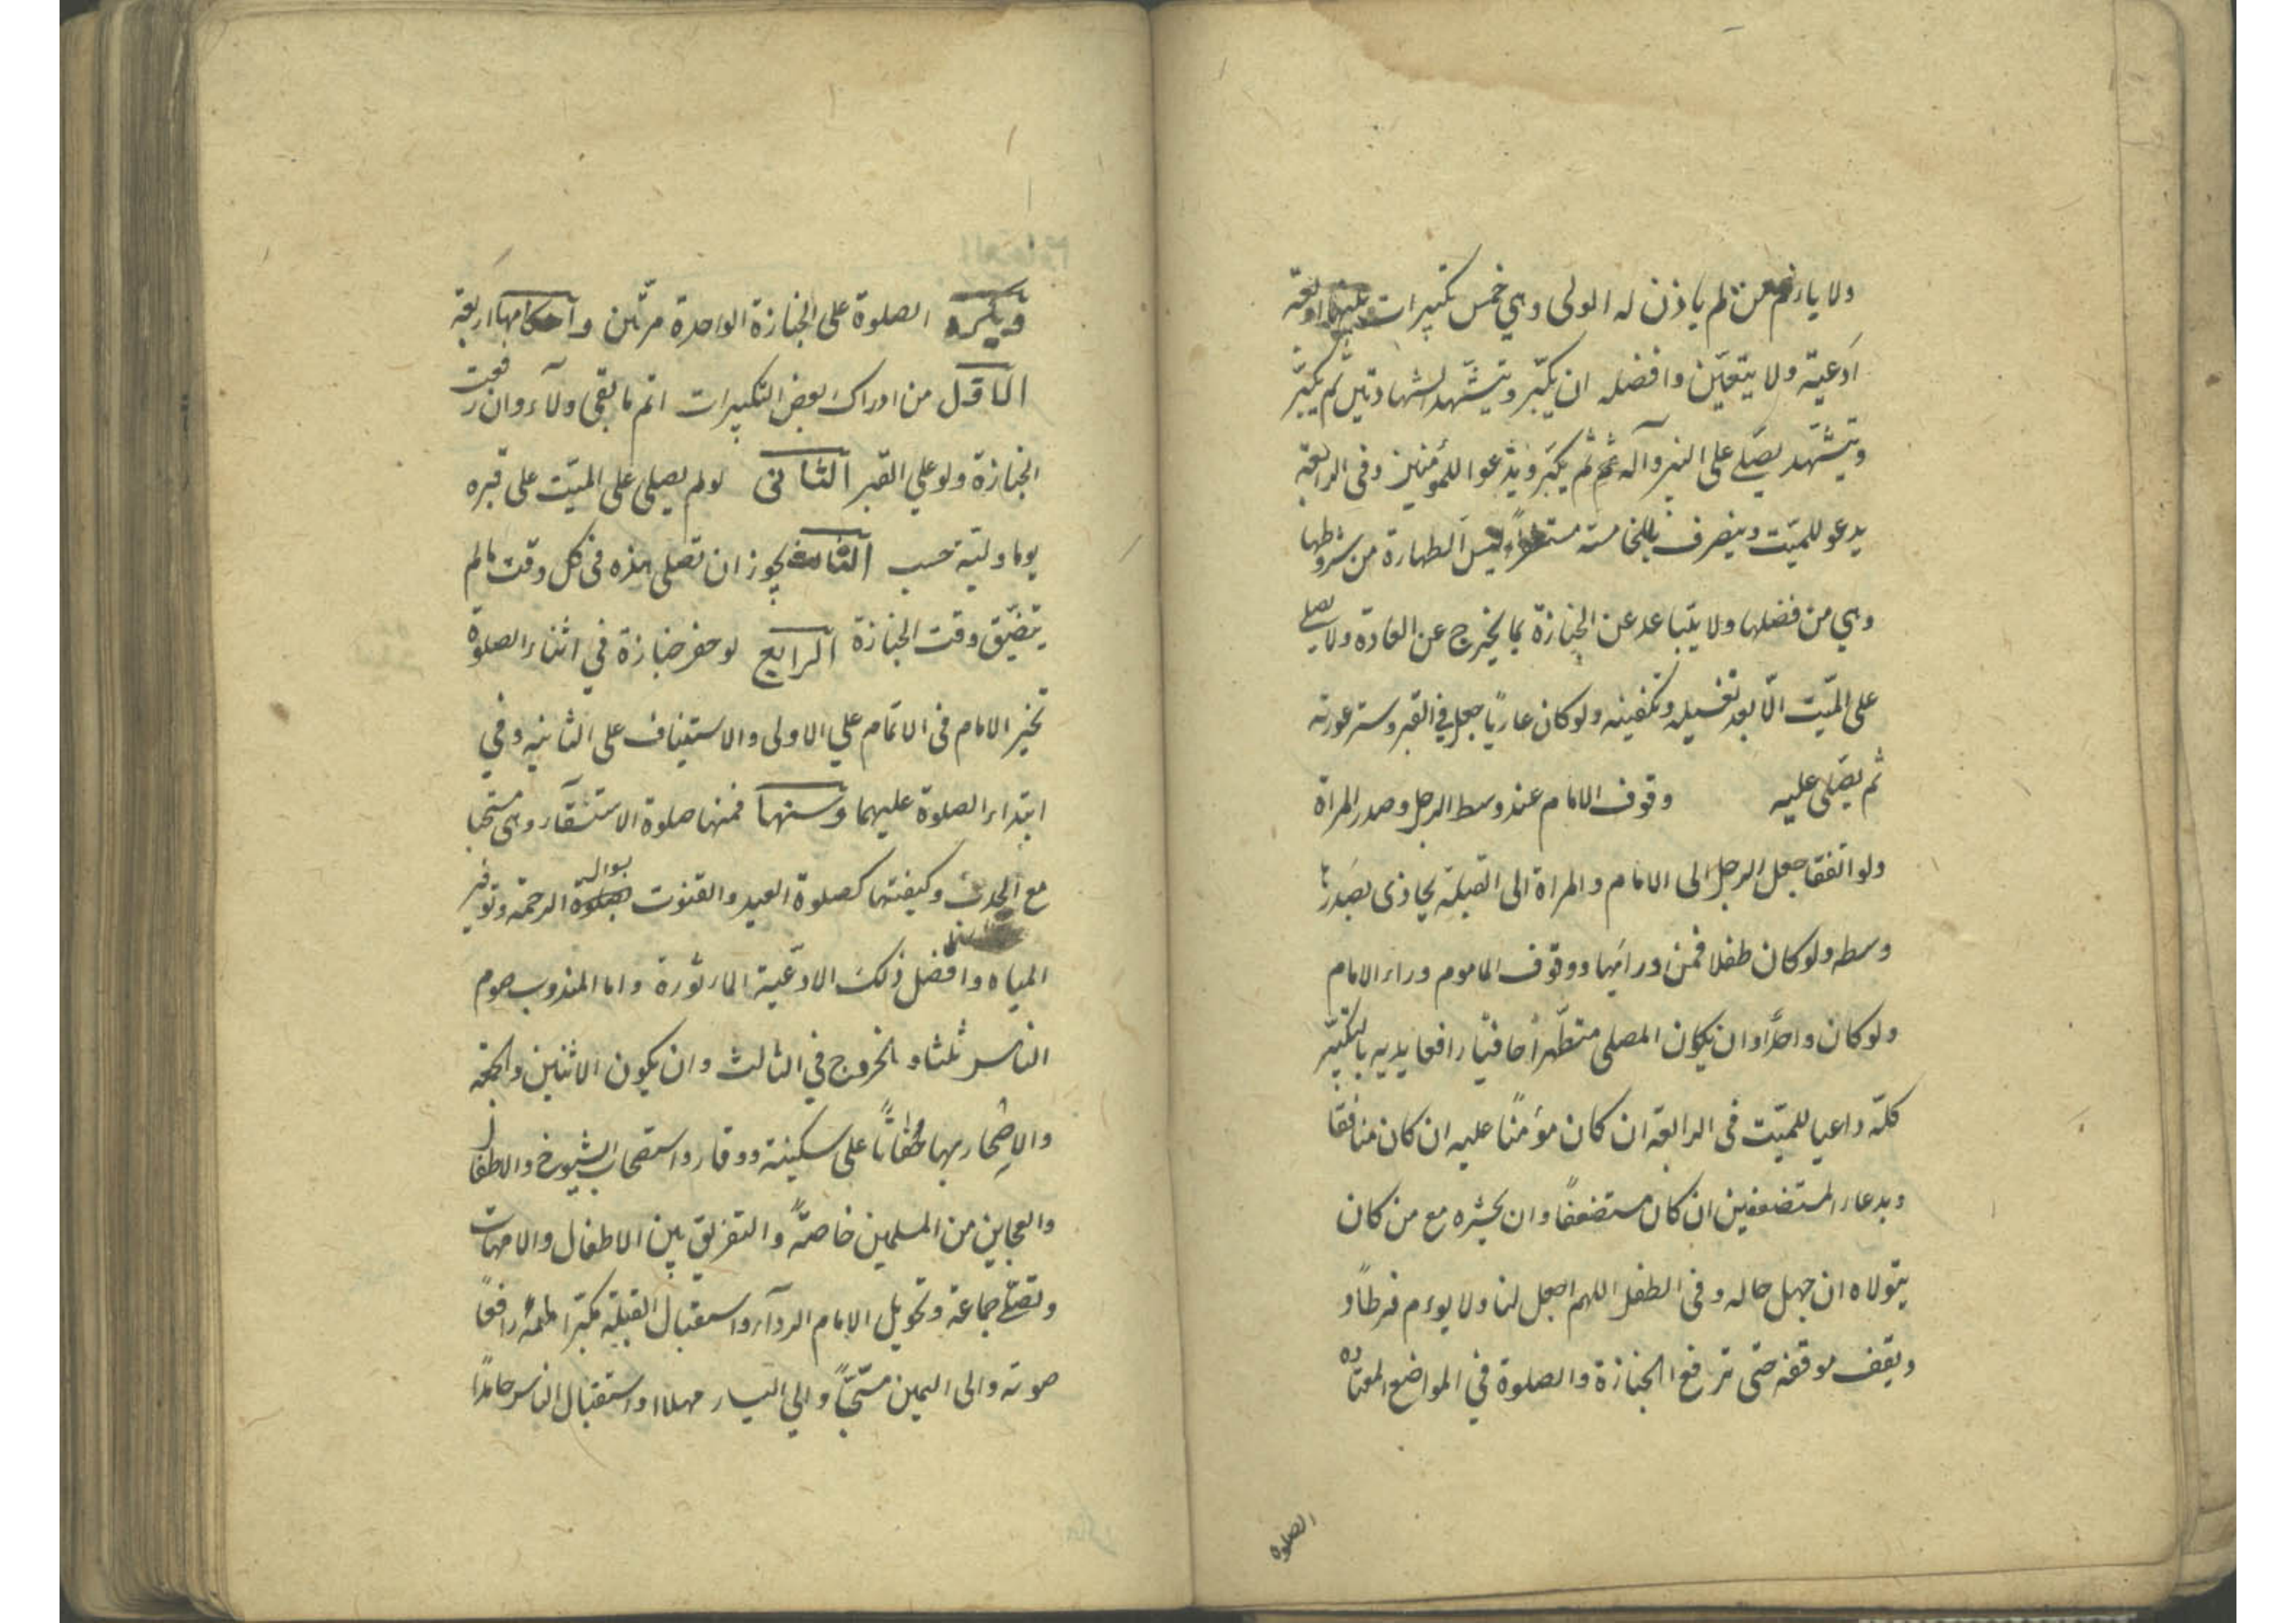 ولا يا من لم ياذن له الولى وهي خمس تكبيرات بينها اربعة
ادعية ولا يتعيّن وافضله ان يكبّر ويتشهّد الشهادتين ثم يكبّر
ويتشهّد يصلّي على النبي وآله ثم يكبّر ويدعوا للمؤمنين وفي الرابعة
يدعو للميّت وينصرف بالخامسة مستغفراً وليس الطهارة من شروطها
وهي من فضلها ولا يتباعد عن الجنازة بما يخرج عن العادة ولا يصلى
على الميّت الّا بعد تغسيله وتكفينه ولو كان عارياً جعل في القبر وستر عورته
ثم يصّلى عليه وقوف الامام عند وسط الرجل وصدر المراة
ولو اتفقا جعل الرجل الى الامام والمراة الى القبلة يحاذى بصدرها
وسطه ولو كان طفلا فمن ورائها ووقوف الماموم وراء الامام
ولو كان واحدًا وان يكون المصلى متطّهراً حافيًا رافعا يديه بالتكبير
كلّه داعيا للميّت فى الرابعة ان كان مؤمنًا عليه ان كان منافقًا
وبدعاء المستضعفين ان كان مستضعفًا وان يحشره مع من كان
يتولاه ان جهل حاله وفى الطفل اللهم اجعل لنا ولابويه فرطاً و
ويقف موقفه حتى ترفع الجنازة والصلوة في المواضع المعتاده
الصلوة
ويكره الصلوة على الجنازة الواحدة مرّتين وآحكامها اربعة
الاوّل من ادراك بعض التكبيرات اتم ما بقى ولآء وان رفعت
الجنازة ولو علي القبر الثانى لو لم يصلى على الميّت على قبره
يوما وليته حسب الثالث يجوز ان تصلى هذه فى كل وقت مالم
يتضيّق وقت الجنازة الرابع لو حضر جنازة في اثناء الصلوة
تخير الامام فى الاتمام علي الاولى والاستيناف على الثانيه وفي
ابتداء الصلوة عليهما وسننها فمنها صلوة الاستسقآء وهى مستحبا
مع الجدب وكيفيتها كصلوة العيد والقنوت بسوال الرحمة وتوفير
المياه وافضل ذلك الادعية الماثورة واما المندوب صوم
الناس ثلثا والخروج في الثالث وان يكون الاثنين والجمعة
والاصحار بها حفاتاً على سكينة ووقار واستصحاب الشيوخ والاطفال
والعجايز من المسلمين خاصةً والتفريق بين الاطفال والامهات
وتصلّے جماعة وتحويل الامام الردآء واستقبال القبلة مكبرا رافعًا
صوته والى اليمين مسبّحاً والي اليسار مهللا واستقبال الناس حامدًا